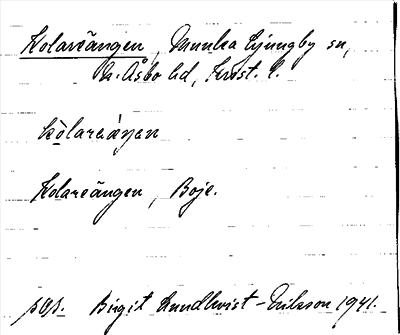 Kolareängen, Munka Ljungby sn,
N. Åsbo hd, Krist. l.
kòlareáŋen
Kolareängen, Boje.
pop. Birgit Lundkvist-Eriksson 1941.